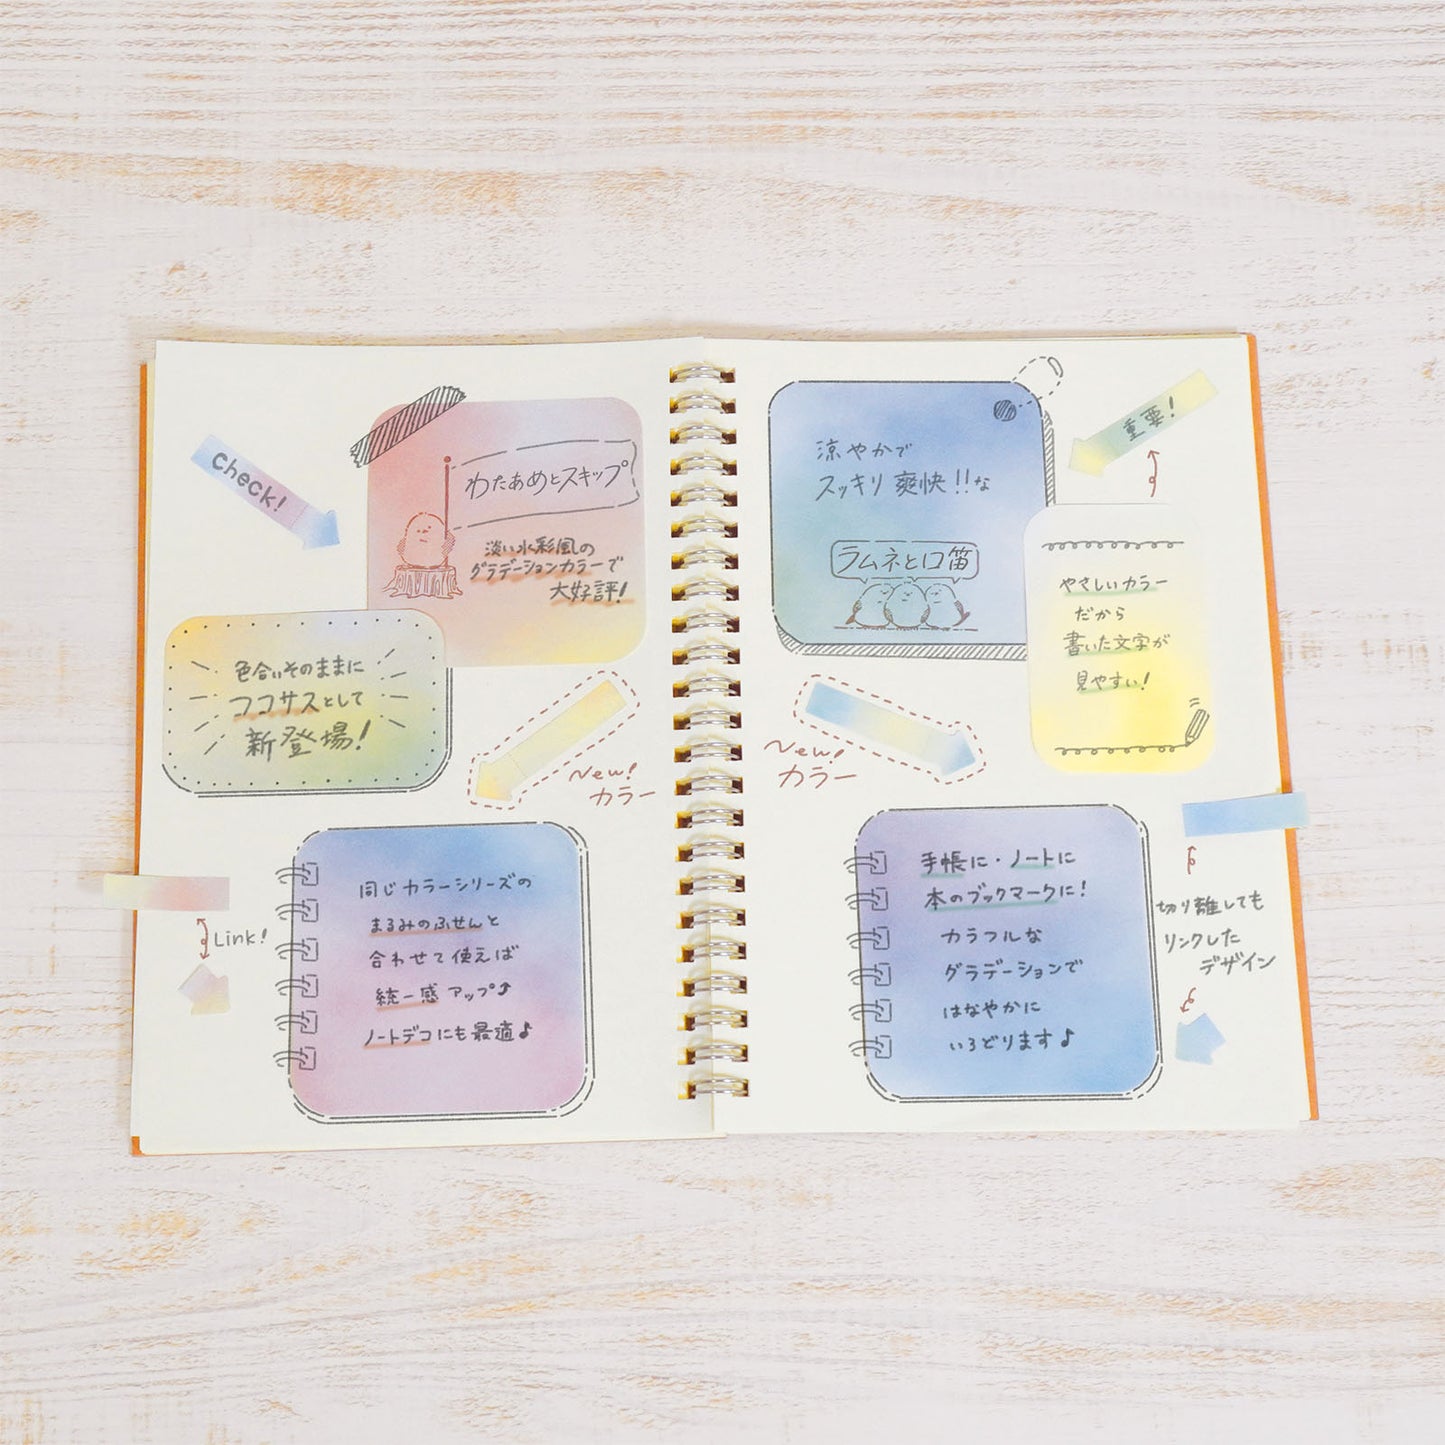 check!
わたあめとスキップ
淡い水彩風の
グラデーションカラーで
大好評!
色合いそのままに
ココサスとして
新登場!
New!
カラー
同じカラーシリーズの
まるみのふせんと
合わせて使えば
統一感アップ⤴
ノートデコにも最適♪
Link!
涼やかで
スッキリ爽快!!な
ラムネと口笛
重要!
やさしいカラー
だから
書いた文字が
見やすい!
New!
カラー
手帳に・ノートに
本のブックマークに!
カラフルな
グラデーションで
はなやかに
いろどります♪
切り離しても
リンクした
デザイン